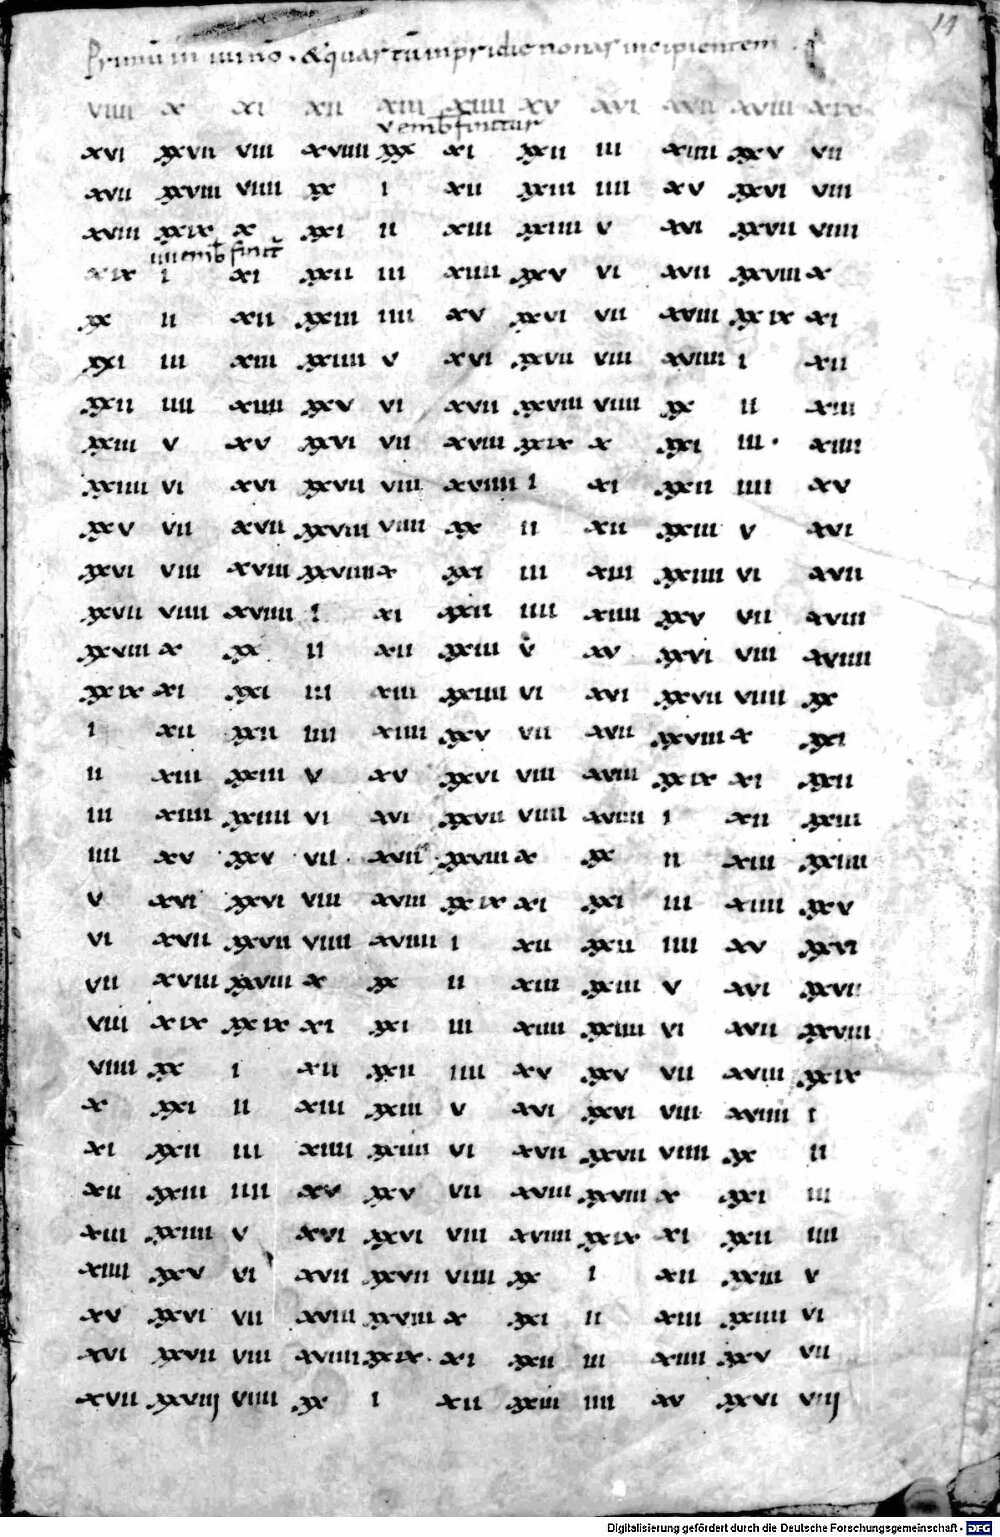 14
Primū in iiii nō · & quartū in pridie nonas incipientem
viiii x xi xii xiii xiiii xv xvi xvii xviii xix
v emb finitur
xvi xxvii viii xviiii xxx xi xxii iii xiiii xxv vii
xvii xxviii viiii xx i xii xxiii iiii xv xxvi viii
xviii xxix x xxi ii xiii xxiiii v xvi xxvii viiii
emb finit
xix i xi xxii iii xiiii xxv vi xvii xxviii x
xx ii xii xxiii iiii xv xxvi vii xviii xxix xi
xxi iii xiii xxiiii v xvi xxvii viii xviiii i xii
xxii iiii xiiii xxv vi xvii xxviii viiii xx ii xiii
xxiii v xv xxvi vii xviii xxix x xxi iii · xiiii
xxiiii vi xvi xxvii viii xviiii i xi xxii iiii xv
xxv vii xvii xxviii viiii xx ii xii xxiii v xvi
xxvi viii xviii xxviiii x xxi iii xiii xxiiii vi xvii
xxvii viiii xviiii i xi xxii iiii xiiii xxv vii xviii
xxviii x xx ii xii xxiii v xv xxvi viii xviiii
xxix xi xxi iii xiii xxiiii vi xvi xxvii viiii xx
i xii xxii iiii xiiii xxv vii xvii xxviii x xxi
ii xiii xxiii v xv xxvi viii xviii xxix xi xxii
iii xiiii xxiiii vi xvi xxvii viiii xviiii i xii xxiii
iiii xv xxv vii xvii xxviii x xx ii xiii xxiiii
v xvi xxvi viii xviii xxix xi xxi iii xiiii xxv
vi xvii xxvii viiii xviiii i xii xxii iiii xv xxvi
vii xviii xxviii x xx ii xiii xxiii v xvi xxvii
viii xix xxix xi xxi iii xiiii xxiiii vi xvii xxviii
viiii xx i xii xxii iiii xv xxv vii xviii xxix
x xxi ii xiii xxiii v xvi xxvi viii xviiii i
xi xxii iii xiiii xxiiii vi xvii xxvii viiii xx ii
xii xxiii iiii xv xxv vii xviii xxviii x xxi iii
xiii xxiiii v xvi xxvi viii xviiii xxix xi xxii iiii
xiiii xxv vi xvii xxvii viiii xx i xii xxiii v
xv xxvi vii xviii xxviii x xxi ii xiii xxiiii vi
xvi xxvii viii xviiii xxix · xi xxii iii xiiii xxv vii
xvii xxviij viiii xx i xii xxiii iiii xv xxvi viij
Digitalisierung gefördert durch die Deutsche Forschungsgemeinschaft - DFG